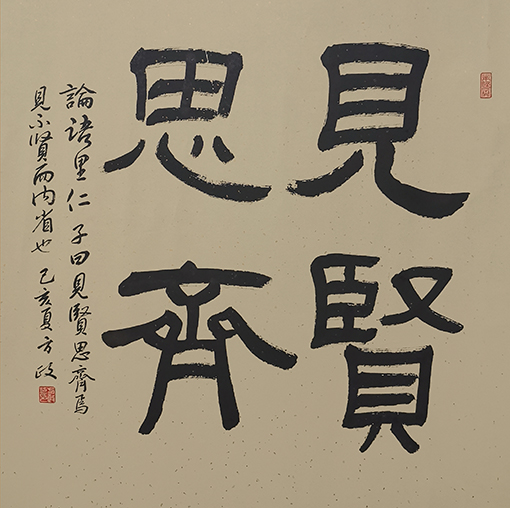 見賢
思齊
論語里仁 子曰見賢思齊焉
見不賢而內省也 己亥夏方政